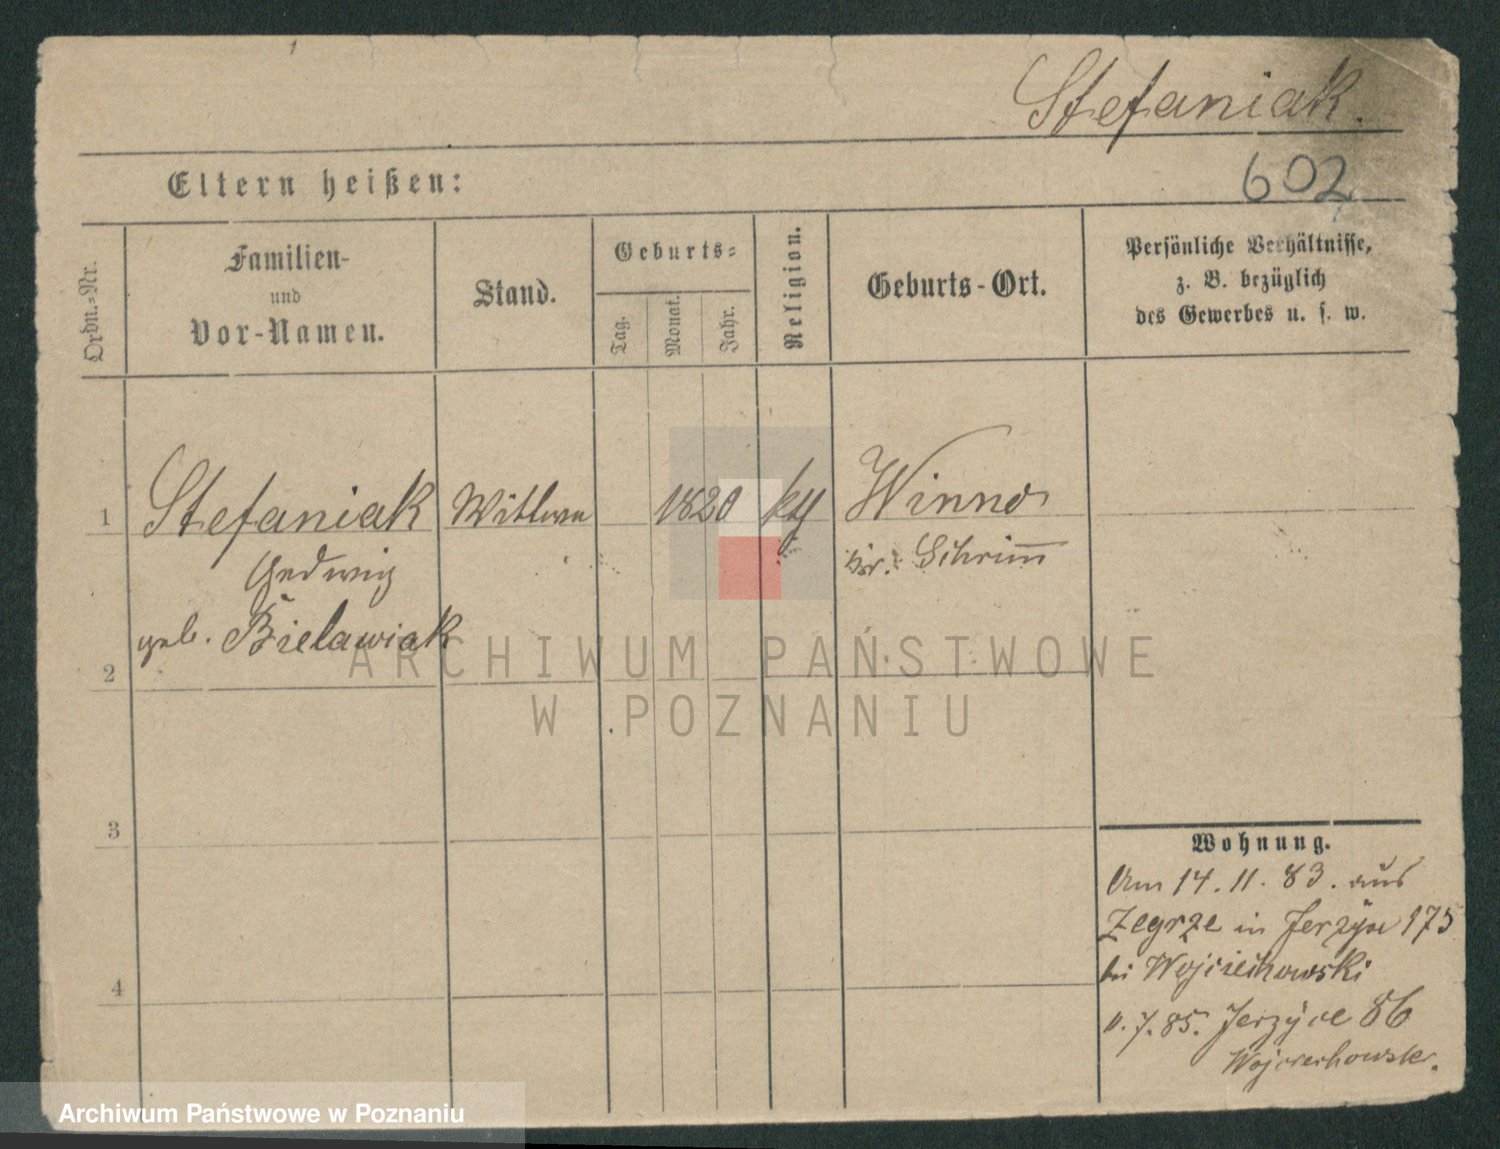 Stefaniak.
602
Eltern heißen:
Ordn.=Nr.
Familien-
und
Vor-Namen.
Stand.
Geburts=
Tag.
Monat.
Jahr.
Religion.
Geburts-Ort.
Persönliche Verhältnisse,
z. B. bezüglich
des Gewerbes u. s. w.
1
Stefaniak Wittwe 1820 Winno
Hedwig Schrimm
geb. Bielawiak
2
ARCHIWUM PAŃSTWOWE
W POZNANIU
3
4
Wohnung.
Am 14. 11. 83. aus
Zegrze in Jerzyce 175
bei Wojciechowski
7. 85. Jerzyce 86
Wojciechowski.
Archiwum Państwowe w Poznaniu